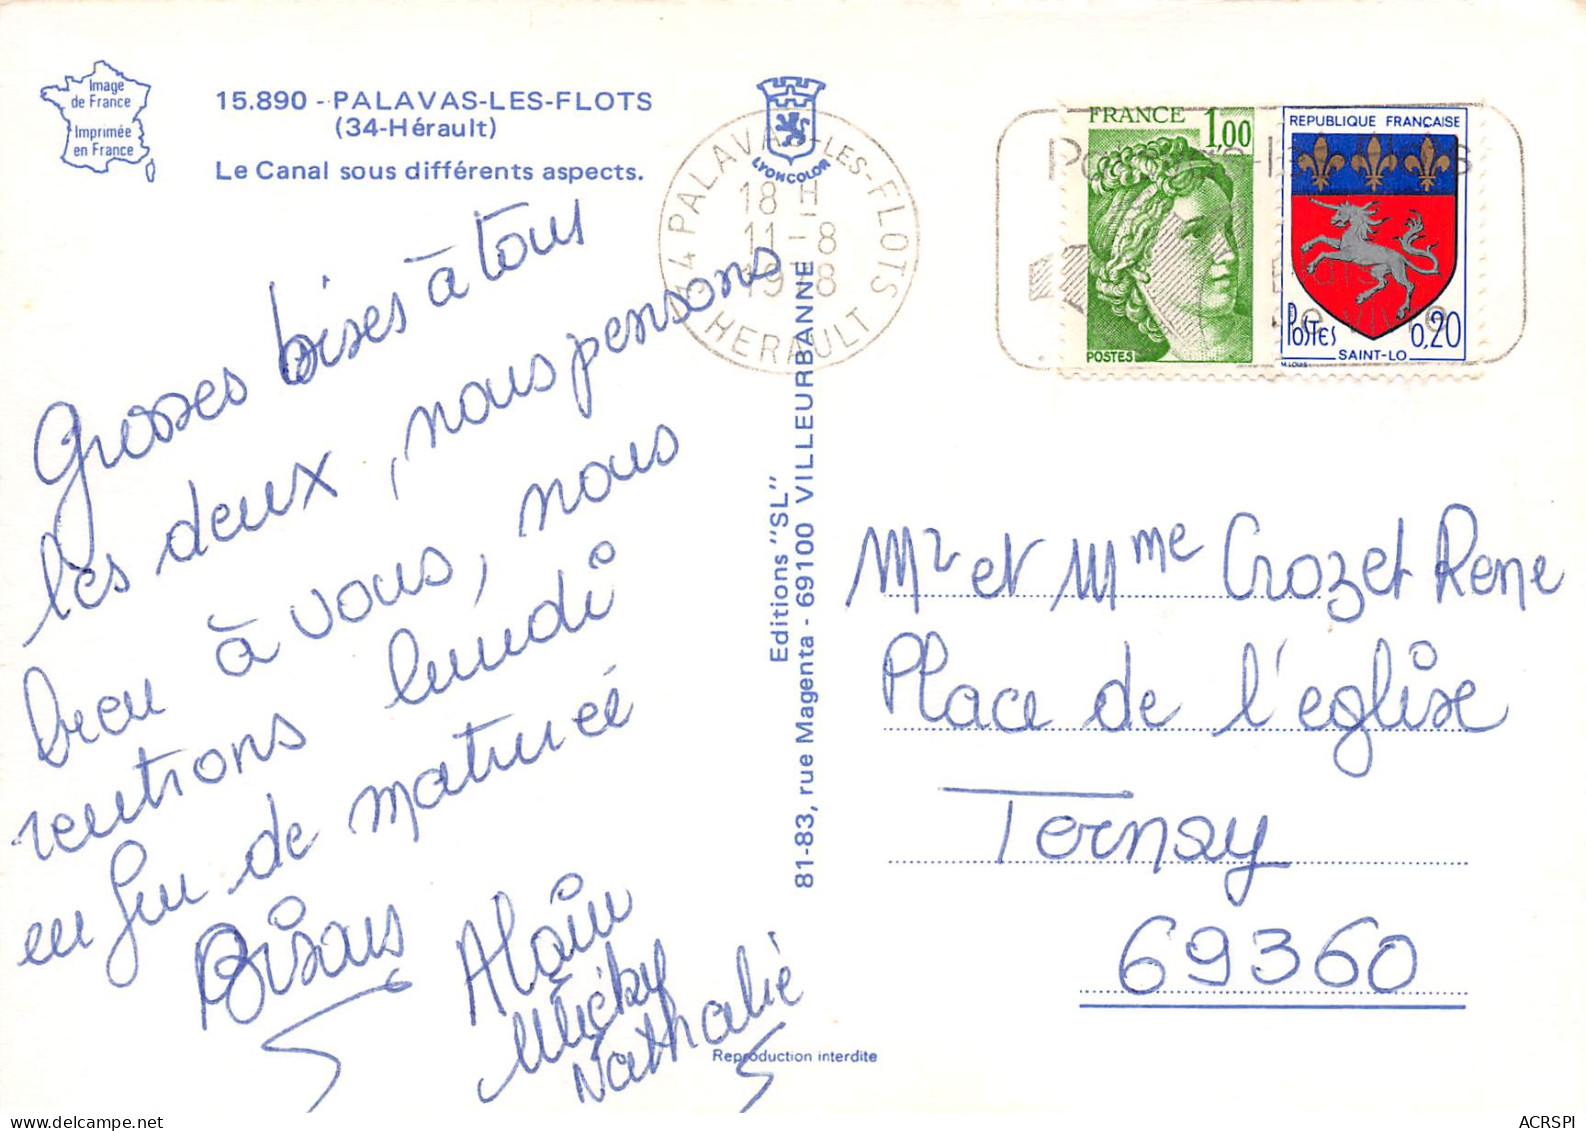 Image
de France
Imprimée
en France
15.890 - PALAVAS-LES-FLOTS
(34-Hérault)
Le Canal sous différents aspects.
Grosses bises à tous
les deux, nous pensons
bien à vous, nous
rentrons lundi
en fin de matinée
Bisous
Alain
Micky
Nathalie
LYONCOLOR
34 PALAVAS-LES-FLOTS
18 H
11-8
1978
HERAULT
Editions "SL"
81-83, rue Magenta - 69100 VILLEURBANNE
Reproduction interdite
FRANCE 1,00
POSTES
REPUBLIQUE FRANÇAISE
POSTES 0,20
SAINT-LO
M. LOUIS
Mr et Mme Crozet Rene
Place de l'eglise
Ternay
69360
ACRSPI